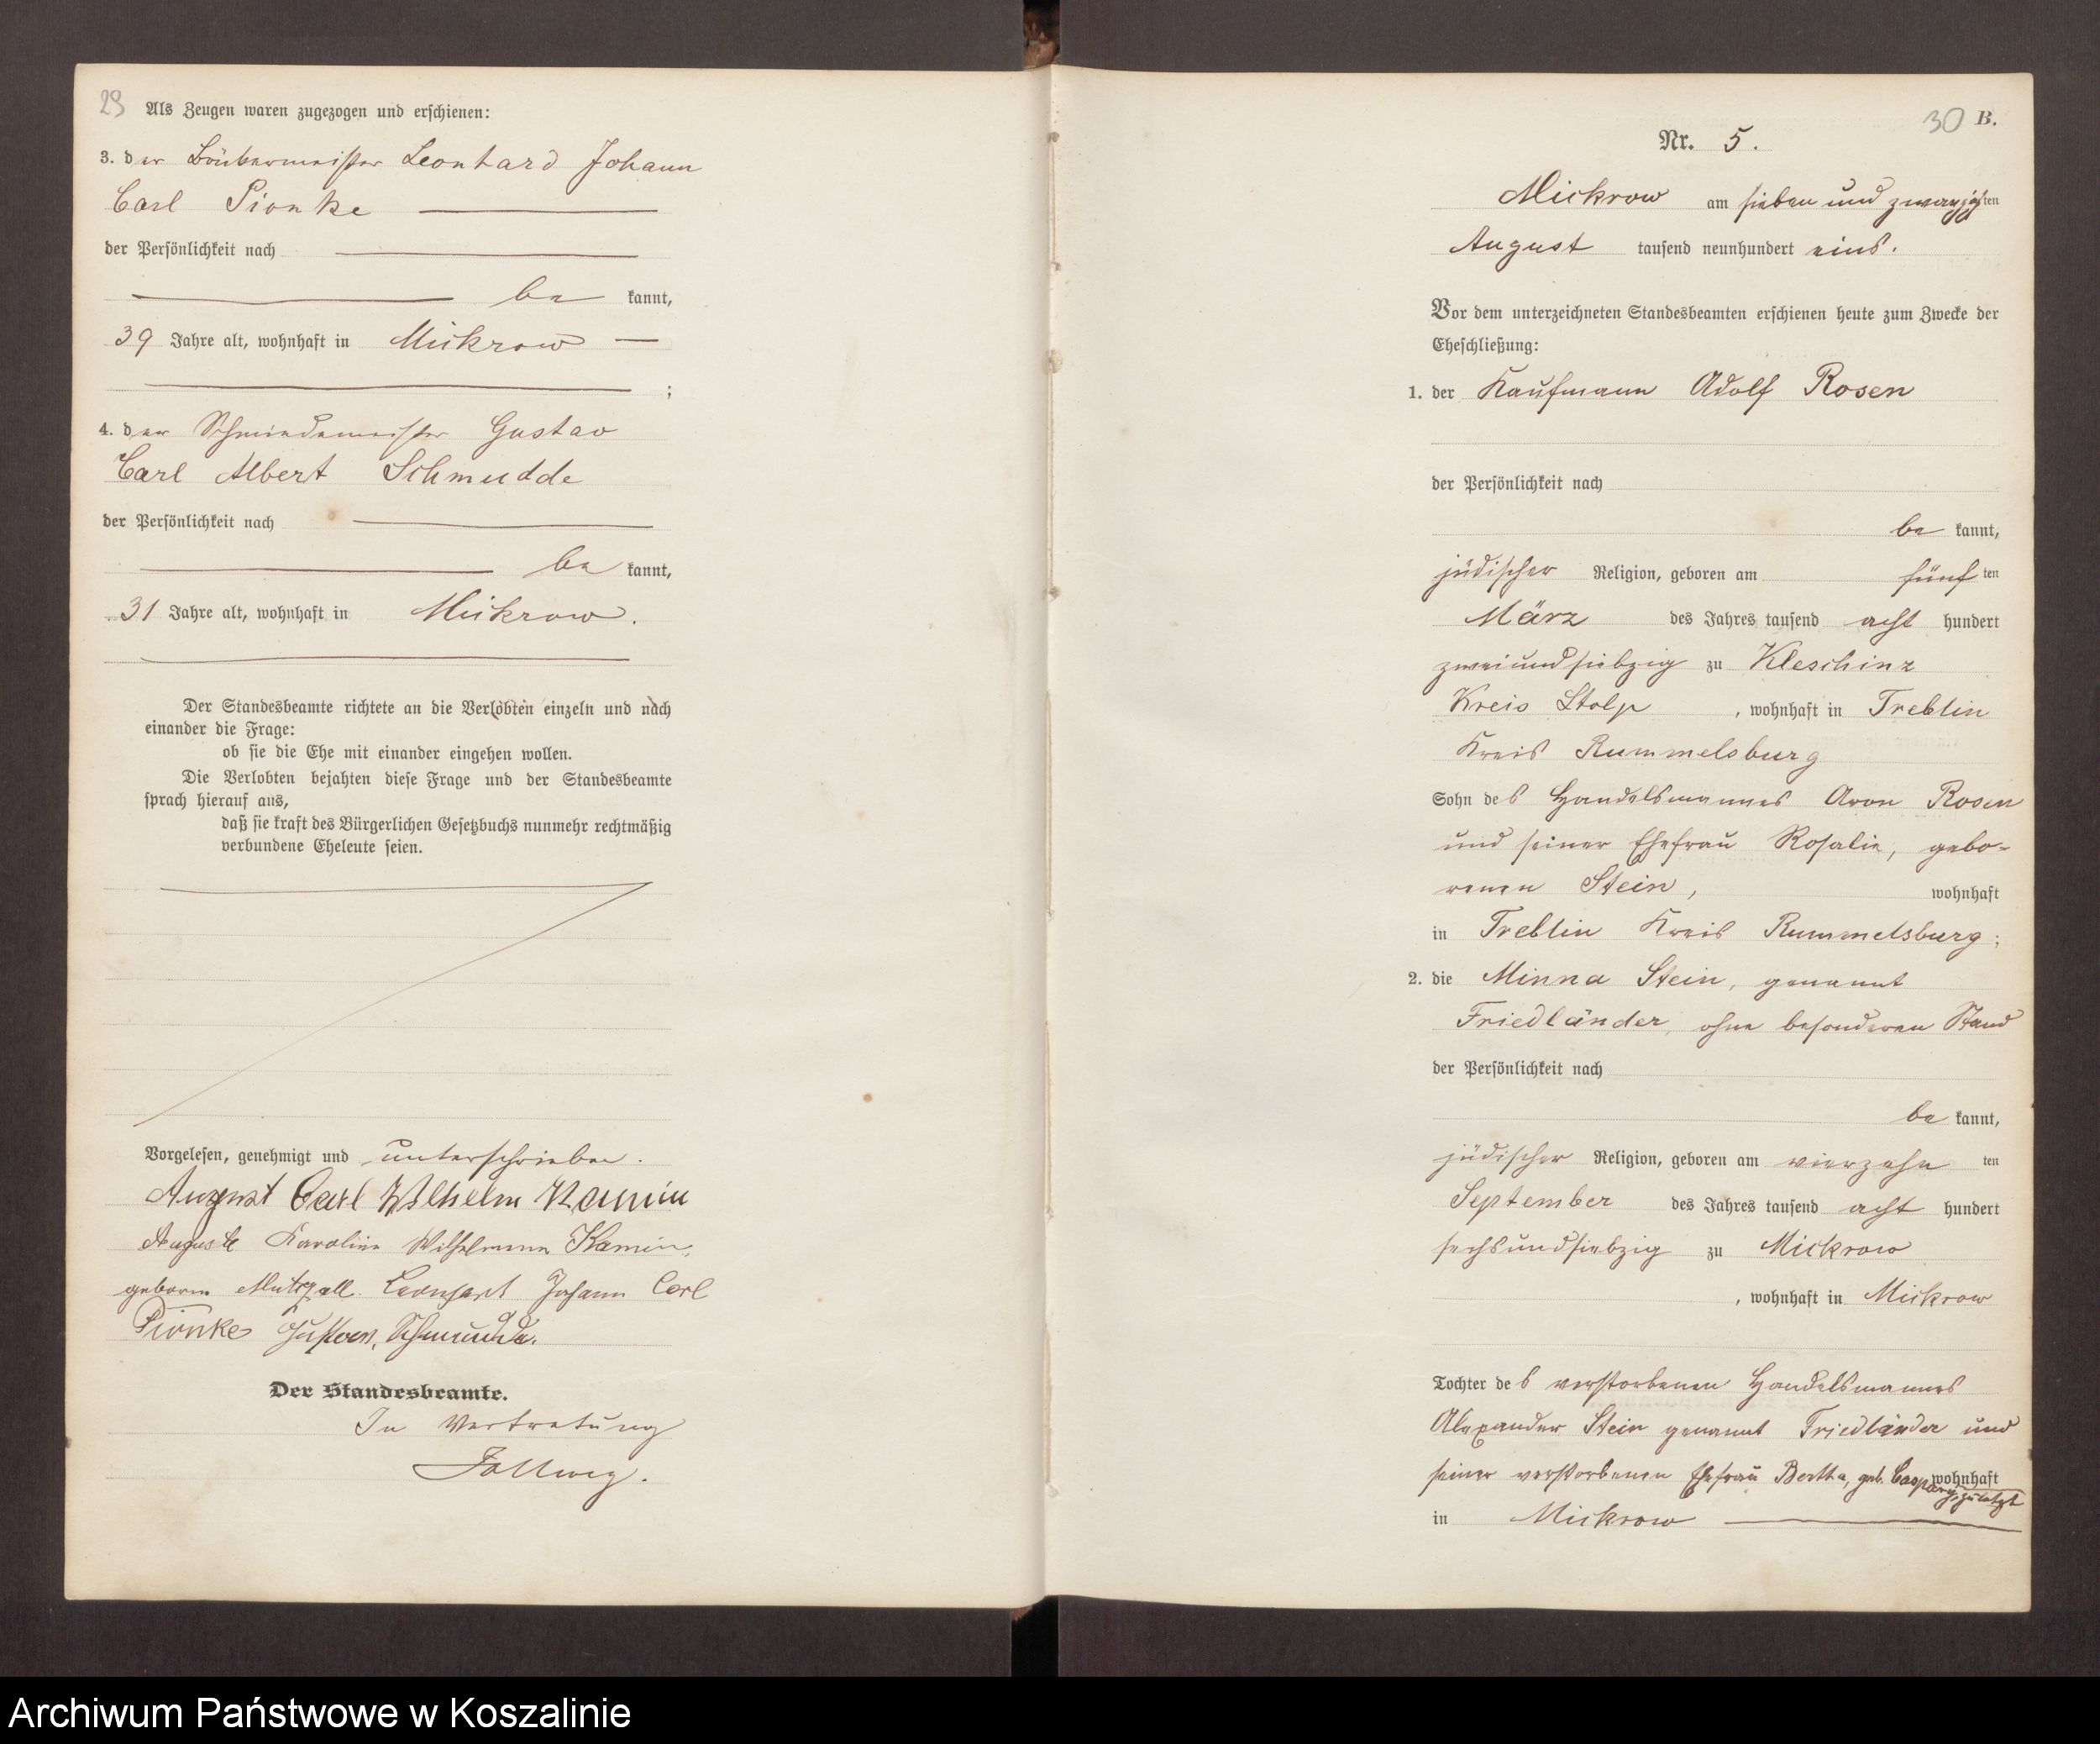 29 Als Zeugen waren zugezogen und erschienen:
3. der Leonhard Johann
Carl Pionke
der Persönlichkeit nach
be kannt,
39 Jahre alt, wohnhaft in Mickrow
;
4. der Schmiedemeister Gustav
Carl Albert Schmudde
der Persönlichkeit nach
be kannt,
31 Jahre alt, wohnhaft in Mickrow.
Der Standesbeamte richtete an die Verlobten einzeln und nach
einander die Frage:
ob sie die Ehe mit einander eingehen wollen.
Die Verlobten bejahten diese Frage und der Standesbeamte
sprach hierauf aus,
daß sie kraft des Bürgerlichen Gesetzbuchs nunmehr rechtmäßig
verbundene Eheleute seien.
Vorgelesen, genehmigt und unterschrieben.
August Carl Wilhelm Kamin
Auguste Karoline Wilhelmine Kamin,
geborne Leonhard Johann Carl
Pionke Gustav, Schmudde.
Der Standesbeamte.
In Vertretung
30 B.
Nr. 5.
Mickrow am sieben und zwanzigsten
August tausend neunhundert eins.
Vor dem unterzeichneten Standesbeamten erschienen heute zum Zwecke der
Eheschließung:
1. der Kaufmann Adolf Rosen
der Persönlichkeit nach
be kannt,
jüdischer Religion, geboren am fünf ten
März des Jahres tausend acht hundert
zweiundsiebzig zu Kleschinz
Kreis Stolp, wohnhaft in Treblin
Kreis Rummelsburg
Sohn des Handelsmannes Aron Rosen
und seiner Ehefrau Rosalie, gebo-
renen Stein, wohnhaft
in Treblin Kreis Rummelsburg;
2. die Minna Stein, genannt
Friedländer, ohne besonderen Stand
der Persönlichkeit nach
be kannt,
jüdischer Religion, geboren am vierzehn ten
September des Jahres tausend acht hundert
sechsundsiebzig zu Mickrow
, wohnhaft in Mickrow
Tochter des verstorbenen Handelsmannes
Alexander Stein genannt Friedländer und
seiner verstorbenen Ehefrau Bertha, geb. Caspary, zuletzt wohnhaft
in Mickrow
Archiwum Państwowe w Koszalinie